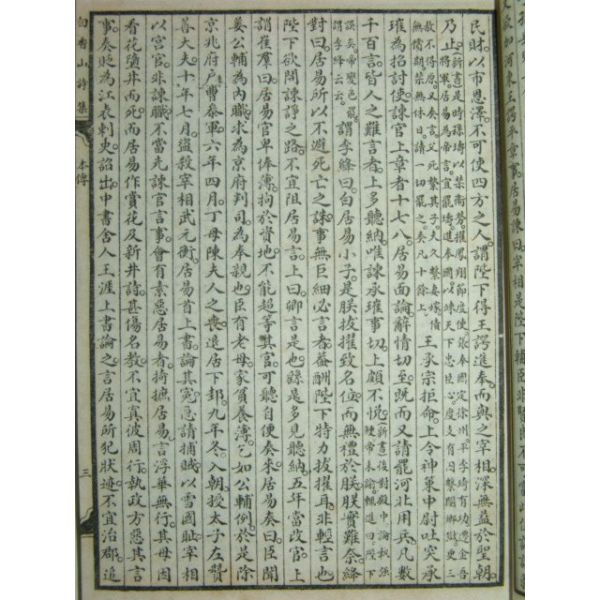 民財以市恩澤不可使四方之人謂陛下得王諤進奉而與之宰相澤無益於聖朝
乃止
王承宗拒命上令神策中尉吐突承
璀為招討使諫官上章者十七八居易面論辭情切至既而又請罷河北用兵凡數
千百言皆人之難言者上多聽納唯諫承璀事切上頗不悅
謂李絳曰白居易小子是朕拔擢致名位而無禮於朕朕實難奈絳
對曰居易所以不避死亡之誅事無巨細必言者蓋酬陛下特力拔擢耳非輕言也
陛下欲開諫諍之路不宜阻居易言上曰卿言是也繇是多見聽納五年當改官上
謂崔羣曰居易官卑俸薄拘於資地不能超等其官可聽自便奏來居易奏曰臣聞
姜公輔為內職求為京府判司為奉親也臣有老母家貧養薄乞如公輔例於是除
京兆府戶曹參軍六年四月丁母陳夫人之喪退居下邽九年冬入朝授太子左贊
善大夫十年七月盜殺宰相武元衡居易首上書論其冤急請捕賊以雪國恥宰相
以宮官非諫職不當先諫官言事會有素惡居易者掎摭居易言浮華無行其母因
看花墮井而死而居易作賞花及新井詩甚傷名教不宜寘彼周行執政方惡其言
事奏貶為江表刺史詔出中書舍人王涯上書論之言居易所犯狀迹不宜治郡追
白香山詩集
本傳
三